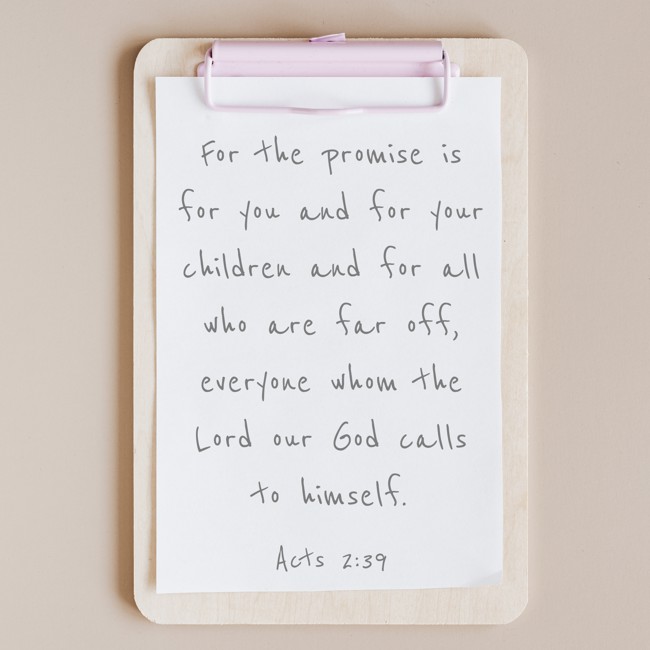 For the promise is
for you and for your
children and for all
who are far off,
everyone whom the
Lord our God calls
to himself.
Acts 2:39